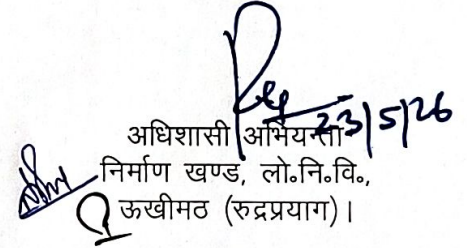 23/5/26
अधिशासी अभियन्ता
निर्माण खण्ड, लो॰नि॰वि॰,
ऊखीमठ (रुद्रप्रयाग)।